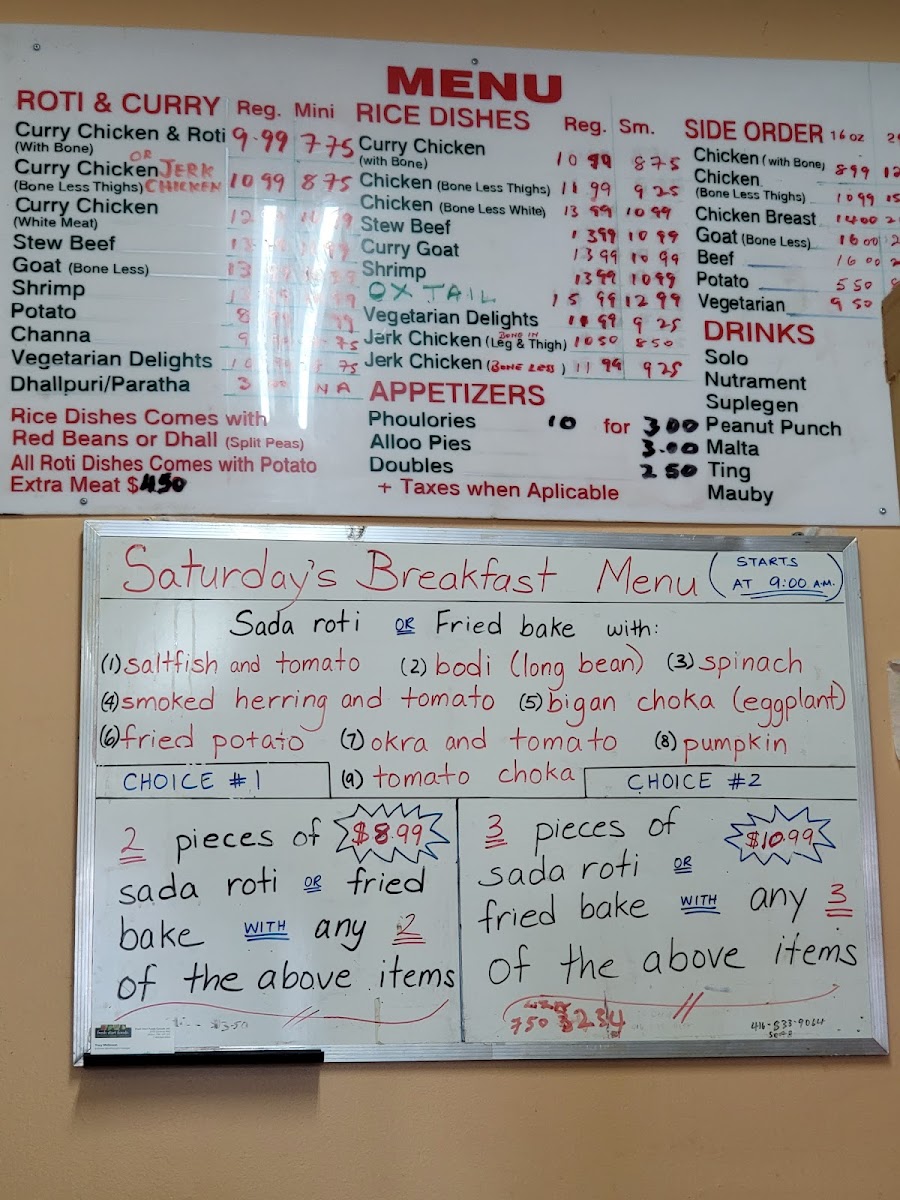 MENU
ROTI & CURRY Reg. Mini
Curry Chicken & Roti 9.99 7.75
(With Bone)
OR
Curry Chicken JERK
(Bone Less Thighs) CHICKEN 10 99 8 75
Curry Chicken
(White Meat)
Stew Beef
Goat (Bone Less)
Shrimp
Potato
Channa
Vegetarian Delights
Dhallpuri/Paratha NA
Rice Dishes Comes with
Red Beans or Dhall (Split Peas)
All Roti Dishes Comes with Potato
Extra Meat $4.50
RICE DISHES Reg. Sm.
Curry Chicken
(with Bone) 10 99 8 75
Chicken (Bone Less Thighs) 11 99 9 25
Chicken (Bone Less White) 13 99 10 99
Stew Beef 13 99 10 99
Curry Goat 13 99 10 99
Shrimp 13 99 10 99
OX TAIL 15 99 12 99
Vegetarian Delights 9 25
BONE IN
Jerk Chicken (Leg & Thigh) 10 50 8 50
Jerk Chicken (BONE LESS) 11 99 9 25
APPETIZERS
Phoulories 10 for 3 00
Alloo Pies 3.00
Doubles 2 50
+ Taxes when Aplicable
SIDE ORDER 16 oz
Chicken (with Bone) 8 99
Chicken
(Bone Less Thighs) 10 99
Chicken Breast 14 00
Goat (Bone Less) 16 00
Beef 16 00
Potato 5 50
Vegetarian 9 50
DRINKS
Solo
Nutrament
Suplegen
Peanut Punch
Malta
Ting
Mauby
Saturday's Breakfast Menu (STARTS
AT 9:00 A.M.)
Sada roti OR Fried bake with:
(1) saltfish and tomato (2) bodi (long bean) (3) spinach
(4) smoked herring and tomato (5) bigan choka (eggplant)
(6) fried potato (7) okra and tomato (8) pumpkin
(9) tomato choka
CHOICE #1
2 pieces of $8.99
sada roti OR fried
bake WITH any 2
of the above items
CHOICE #2
3 pieces of $10.99
sada roti OR
fried bake WITH any 3
of the above items
750
416-533-9064